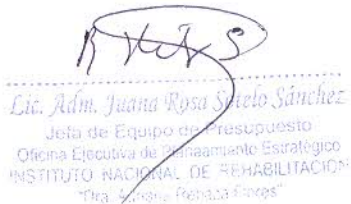 Lic. Adm. Juana Rosa Sotelo Sánchez
Jefa de Equipo de Presupuesto
Oficina Ejecutiva de Planeamiento Estratégico
INSTITUTO NACIONAL DE REHABILITACION
"Dra. Adriana Rebaza Flores"